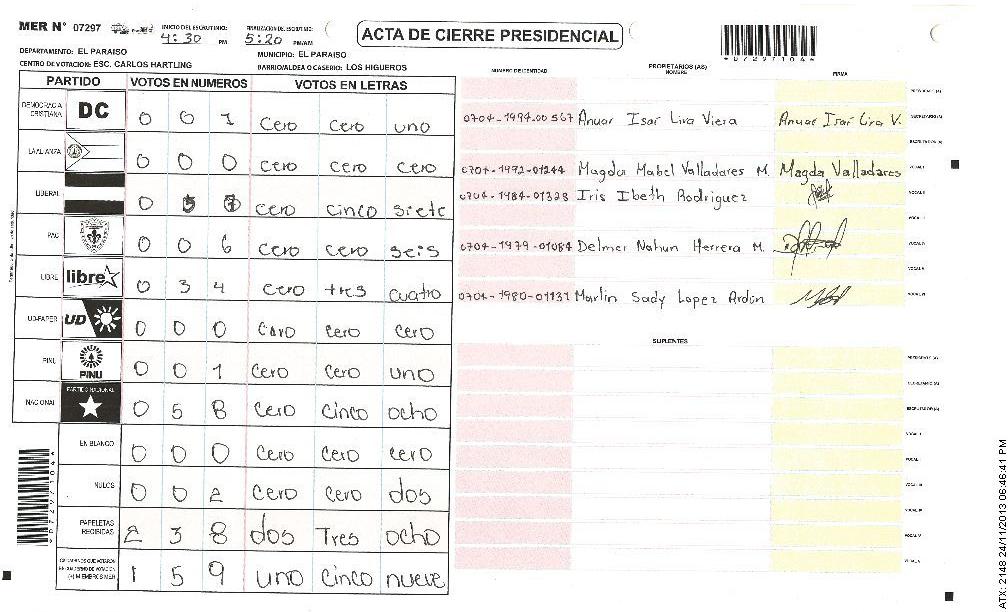 MER N° 07297
INICIO DEL ESCRUTINIO: 4:30 PM
FINALIZACION DEL ESCRUTINIO: 5:20 PM/AM
ACTA DE CIERRE PRESIDENCIAL
*07297104*
DEPARTAMENTO: EL PARAISO
MUNICIPIO: EL PARAISO
CENTRO DE VOTACION: ESC. CARLOS HARTLING
BARRIO/ALDEA O CASERIO: LOS HIGUEROS
PARTIDO VOTOS EN NUMEROS VOTOS EN LETRAS
DEMOCRACIA CRISTIANA DC 0 0 1 cero cero uno
LA ALIANZA 0 0 0 cero cero cero
LIBERAL 0 5 7 cero cinco siete
PAC 0 0 6 cero cero seis
LIBRE libre 0 3 4 cero tres cuatro
UD-FAPER UD 0 0 0 cero cero cero
PINU PINU 0 0 1 cero cero uno
NACIONAL PARTIDO NACIONAL 0 5 8 cero cinco ocho
EN BLANCO 0 0 0 cero cero cero
NULOS 0 0 2 cero cero dos
PAPELETAS RECIBIDAS 2 3 8 dos Tres ocho
CIUDADANOS QUE VOTARON EN CUADERNO DE VOTACION (+) MIEMBROS MER 1 5 9 uno cinco nueve
*07297104*
NUMERO DE IDENTIDAD PROPIETARIOS (AS) NOMBRE FIRMA
PRESIDENTE (A)
0704-1994-00567 Anuar Isai Lira Viera Anuar Isai Lira V. SECRETARIO (A)
ESCRUTADOR (A)
0704-1992-01244 Magda Mabel Valladares M. Magda Valladares VOCAL I
0704-1984-01328 Iris Ibeth Rodriguez VOCAL II
VOCAL III
0704-1979-01084 Delmer Nahun Herrera M. VOCAL IV
VOCAL V
0704-1980-01131 Marlin Sady Lopez Ardon VOCAL VI
SUPLENTES
PRESIDENTE (A)
SECRETARIO (A)
ESCRUTADOR (A)
VOCAL I
VOCAL II
VOCAL III
VOCAL IV
VOCAL V
VOCAL VI
ATX: 2148 24/11/2013 06:46:41 PM